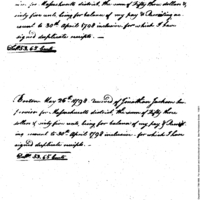 visor for Massachusetts district, the sum of Fifty three dollars &
sixty five cents, being for balance of my pay &
annual to 30th April 1798 inclusive for which I have
signed duplicate receipts.
Dolls 53.65 cents
Boston May 26th 1798 received of Jonathan Jackson Su-
pervisor for Massachusetts district, the sum of Fifty three
dollars & sixty five cents being for balance of my pay &
annual to 30th April 1798 inclusive. for which I have
signed duplicate receipts.
Dolls 53.65 cents